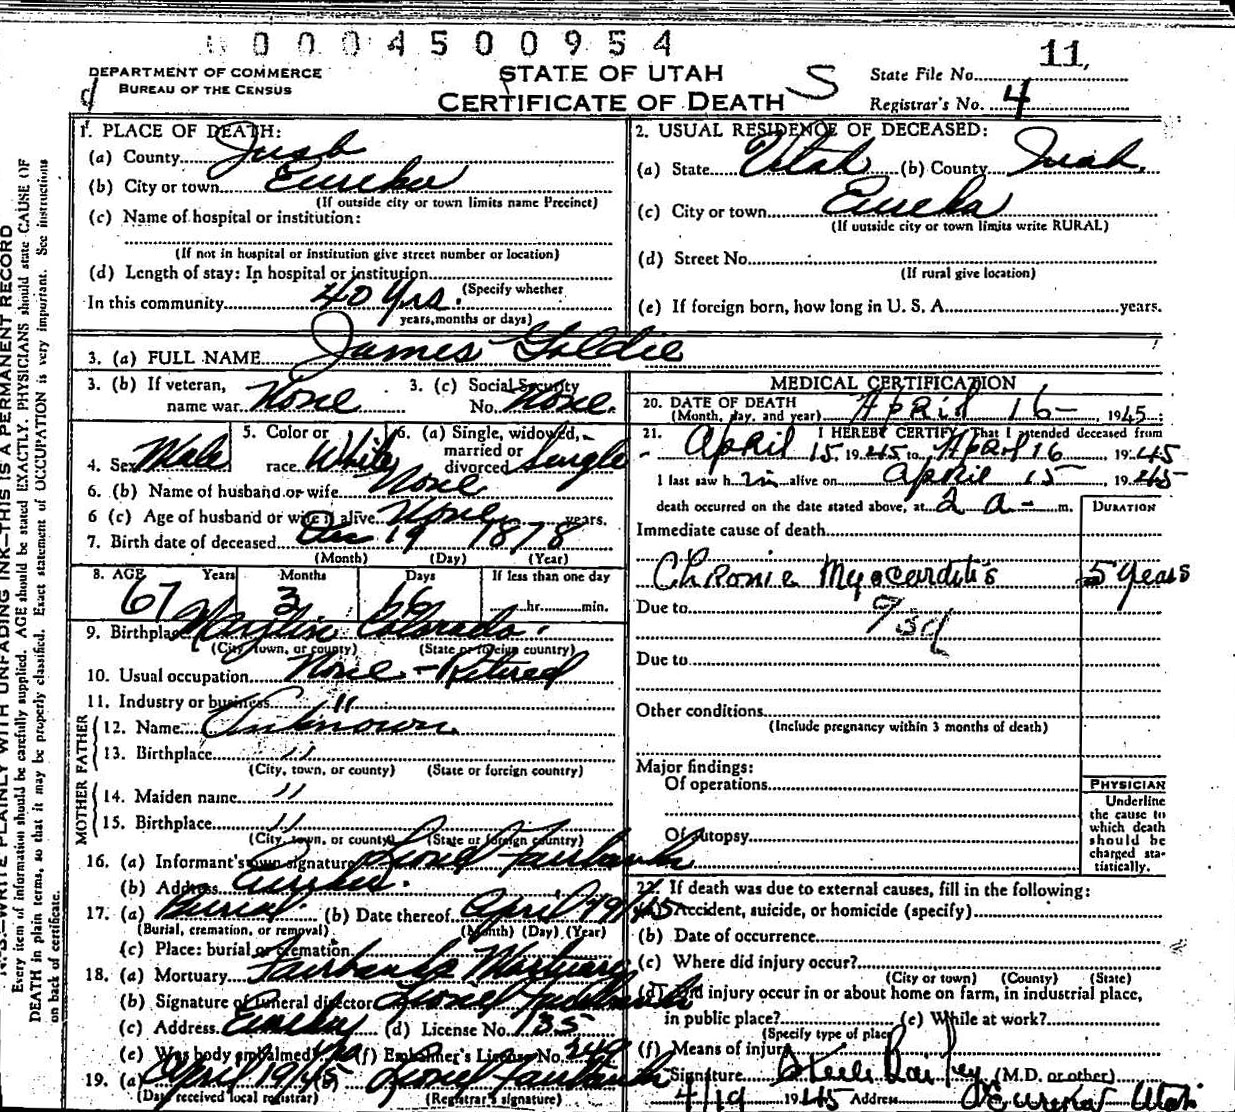 0004500954
11,
DEPARTMENT OF COMMERCE
BUREAU OF THE CENSUS
d
STATE OF UTAH
CERTIFICATE OF DEATH
S
State File No.
Registrar's No. 4
1. PLACE OF DEATH:
(a) County Juab
(b) City or town Eureka
(If outside city or town limits name Precinct)
(c) Name of hospital or institution:
(If not in hospital or institution give street number or location)
(d) Length of stay: In hospital or institution
(Specify whether
In this community 40 Yrs.
years, months or days)
2. USUAL RESIDENCE OF DECEASED:
(a) State Utah (b) County Juab
(c) City or town Eureka
(If outside city or town limits write RURAL)
(d) Street No.
(If rural give location)
(e) If foreign born, how long in U. S. A. years.
3. (a) FULL NAME James Goldie
3. (b) If veteran, name war None
3. (c) Social Security No. None.
4. Sex Male
5. Color or race White
6. (a) Single, widowed, married or divorced Single
6. (b) Name of husband or wife None
6 (c) Age of husband or wife if alive years.
7. Birth date of deceased Dec 19 1878
(Month) (Day) (Year)
8. AGE Years Months Days If less than one day
67 3 hr. min.
9. Birthplace Colorado.
(City, town, or county) (State or foreign country)
10. Usual occupation None - Retired
11. Industry or business "
FATHER
12. Name Unknown.
13. Birthplace "
(City, town, or county) (State or foreign country)
MOTHER
14. Maiden name "
15. Birthplace "
(City, town, or county) (State or foreign country)
16. (a) Informant's own signature Lionel Fairbanks
(b) Address Eureka.
17. (a) Burial. (b) Date thereof April 19/45
(Burial, cremation, or removal) (Month) (Day) (Year)
(c) Place: burial or cremation
18. (a) Mortuary Fairbanks Mortuary
(b) Signature of funeral director Lionel Fairbanks
(c) Address Eureka (d) License No. 135
(e) Was body embalmed? Yes (f) Embalmer's License No. 240
19. (a) April 19/45 Lionel Fairbanks
(Date received local registrar) (Registrar's signature)
MEDICAL CERTIFICATION
20. DATE OF DEATH
(Month, day, and year) April 16- 1945
21. I HEREBY CERTIFY, That I attended deceased from
April 15 1945 to April 16 1945
I last saw him alive on April 15 1945
death occurred on the date stated above, at 2 a- m.
DURATION
Immediate cause of death
Chronic Myocarditis 5 years
Due to 93d
Due to
Other conditions
(Include pregnancy within 3 months of death)
Major findings:
Of operations
Of autopsy
PHYSICIAN
Underline
the cause to
which death
should be
charged sta-
tistically.
22. If death was due to external causes, fill in the following:
(a) Accident, suicide, or homicide (specify)
(b) Date of occurrence
(c) Where did injury occur?
(City or town) (County) (State)
(d) Did injury occur in or about home on farm, in industrial place,
in public place? (e) While at work?
(Specify type of place)
(f) Means of injury
Signature Steele Bailey (M.D. or other)
4/19 1945 Address Eureka Utah
N. B.—WRITE PLAINLY WITH UNFADING INK—THIS IS A PERMANENT RECORD
Every item of information should be carefully supplied. AGE should be stated EXACTLY. PHYSICIANS should state CAUSE OF
DEATH in plain terms, so that it may be properly classified. Exact statement of OCCUPATION is very important. See instructions
on back of certificate.